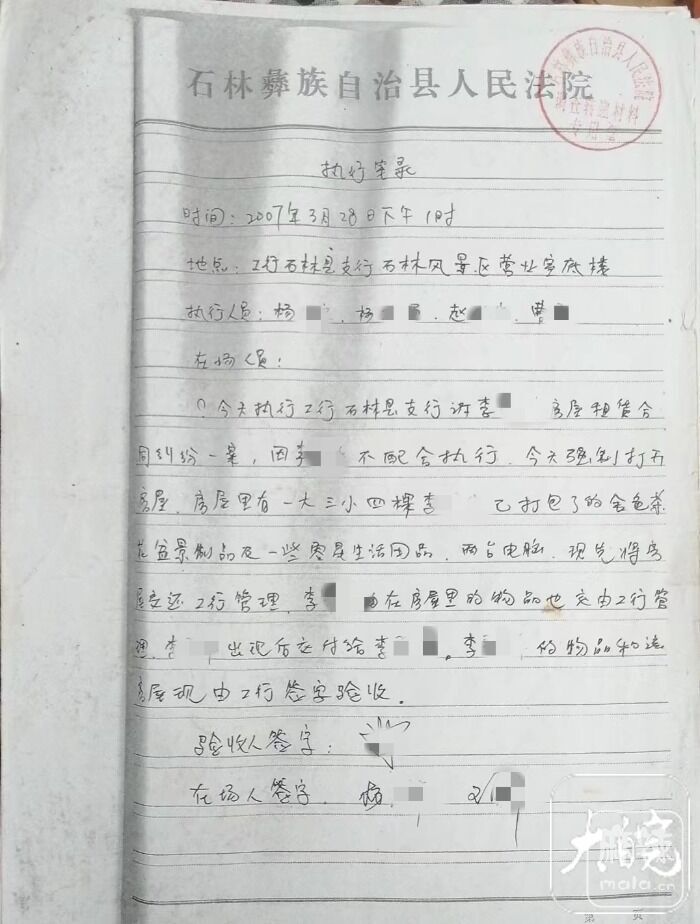 石林彝族自治县人民法院
石林彝族自治县人民法院
诉讼档案材料
专用章
执行笔录
时间：2007年3月28日下午1时
地点：工行石林县支行石林风景区营业室底楼
执行人员：杨 、杨 、赵 、曹
在场人员：
今天执行工行石林县支行诉李 房屋租赁合
同纠纷一案，因李 不配合执行，今天强制打开
房屋，房屋里有一大三小四棵李 已打包了的金色茶
花盆景制品及一些零星生活用品，两台电脑，现先将房
屋交还工行管理，李 在房屋里的物品也交由工行管
理，李 出现后交付给李 。李 的物品和该
房屋现由工行签字验收。
验收人签字：
在场人签字 杨
大麻克
mala.cn
第 页